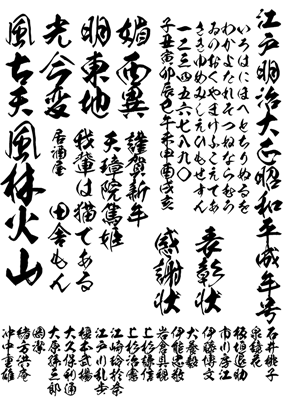 江戸明治大正昭和平成年号
いろはにほへとちりぬるを
わかよたれそつねならむう
ゐのおくやまけふこえてあ
さきゆめみしゑひもせすん
一二三四五六七八九〇
子丑寅卯辰巳午未申酉戌亥
表彰状
感謝状
媚西異
明東地
光今変
風古天
謹賀新年
天璋院篤姫
我輩は猫である
居酒屋 田舎もん
風林火山
石井桃子
泉鏡花
板垣退助
市川房江
伊藤博文
犬養毅
伊能忠敬
岩倉具視
上杉謙信
上杉治憲
江崎玲於奈
江戸川乱歩
榎本武揚
大久保利通
大原孫三郎
岡潔
緒方洪庵
沖中重雄